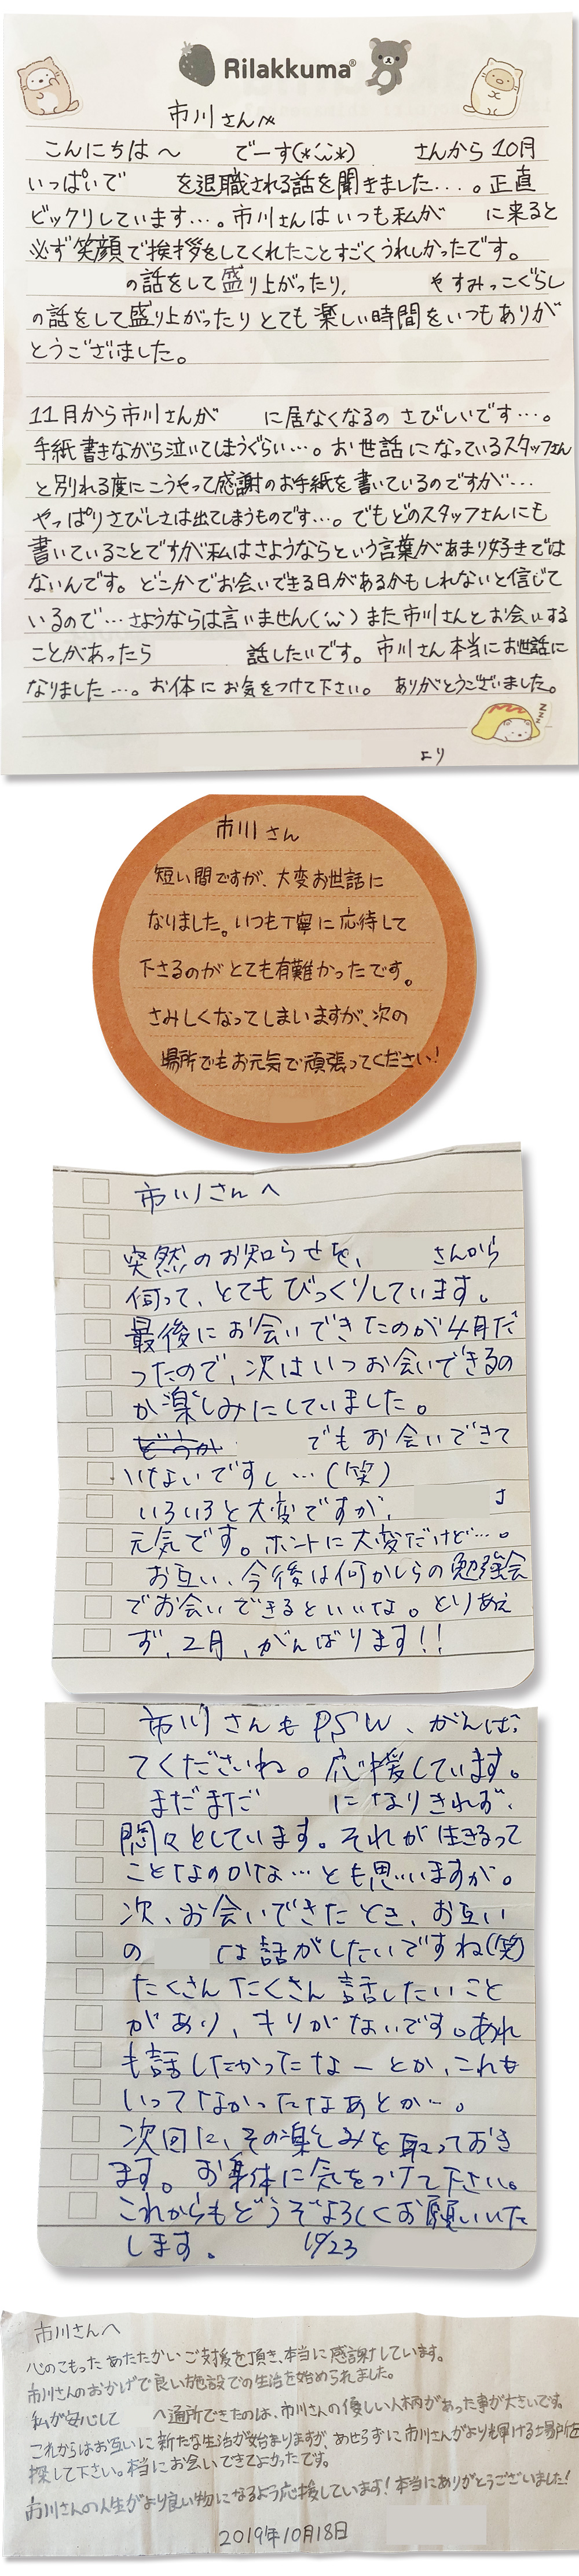 Rilakkuma®
市川さんへ
こんにちは〜 でーす(*'ω'*) さんから10月
いっぱいで を退職される話を聞きました...。正直
ビックリしています...。市川さんはいつも私が に来ると
必ず笑顔で挨拶をしてくれたことすごくうれしかったです。
の話をして盛り上がったり, やすみっこぐらし
の話をして盛り上がったりとても楽しい時間をいつもありが
とうございました。
11月から市川さんが に居なくなるのさびしいです...。
手紙書きながら泣いてしまうぐらい...。お世話になっているスタッフさん
と別れる度にこうやって感謝のお手紙を書いているのですが...
やっぱりさびしさは出てしまうものです...。でもどのスタッフさんにも
書いていることですが私はさようならという言葉があまり好きでは
ないんです。どこかでお会いできる日があるかもしれないと信じて
いるので...さようならは言いません('ω')また市川さんとお会いする
ことがあったら 話したいです。市川さん本当にお世話に
なりました...。お体にお気をつけて下さい。ありがとうございました。
zzz
より
市川さん
短い間ですが、大変お世話に
なりました。いつも丁寧に応待して
下さるのがとても有難かったです。
さみしくなってしまいますが、次の
場所でもお元気で頑張ってください!
市川さんへ
突然のお知らせを、 さんから
伺って、とてもびっくりしています。
最後にお会いできたのが4月だ
ったので、次はいつお会いできるの
か楽しみにしていました。
でもお会いできて
いないですし...(笑)
いろいろと大変ですが、
元気です。ホントに大変だけど...。
お互い、今後は何かしらの勉強会
でお会いできるといいな。とりあえ
ず、2月、がんばります!!
市川さんもPSW、がんばっ
てくださいね。応援しています。
まだまだ になりきれず、
悶々としています。それが生きるって
ことなのかな...とも思いますが。
次、お会いできたとき、お互い
の は話がしたいですね(笑)
たくさんたくさん話したいこと
があり、キリがないです。あれ
も話したかったなーとか、これも
いってなかったなあとか...。
次回に、その楽しみを取っておき
ます。お身体に気をつけて下さい。
これからもどうぞよろしくお願いいた
します。 10/23
市川さんへ
心のこもったあたたかいご支援を頂き、本当に感謝しています。
市川さんのおかげで良い施設での生活を始められました。
私が安心して へ通所できたのは、市川さんの優しい人柄があった事が大きいです。
これからはお互いに新たな生活が始まりますが、あせらずに市川さんがより輝ける場所を
探して下さい。本当にお会いできてよかったです。
市川さんの人生がより良い物になるよう応援しています!本当にありがとうございました!
2019年10月18日